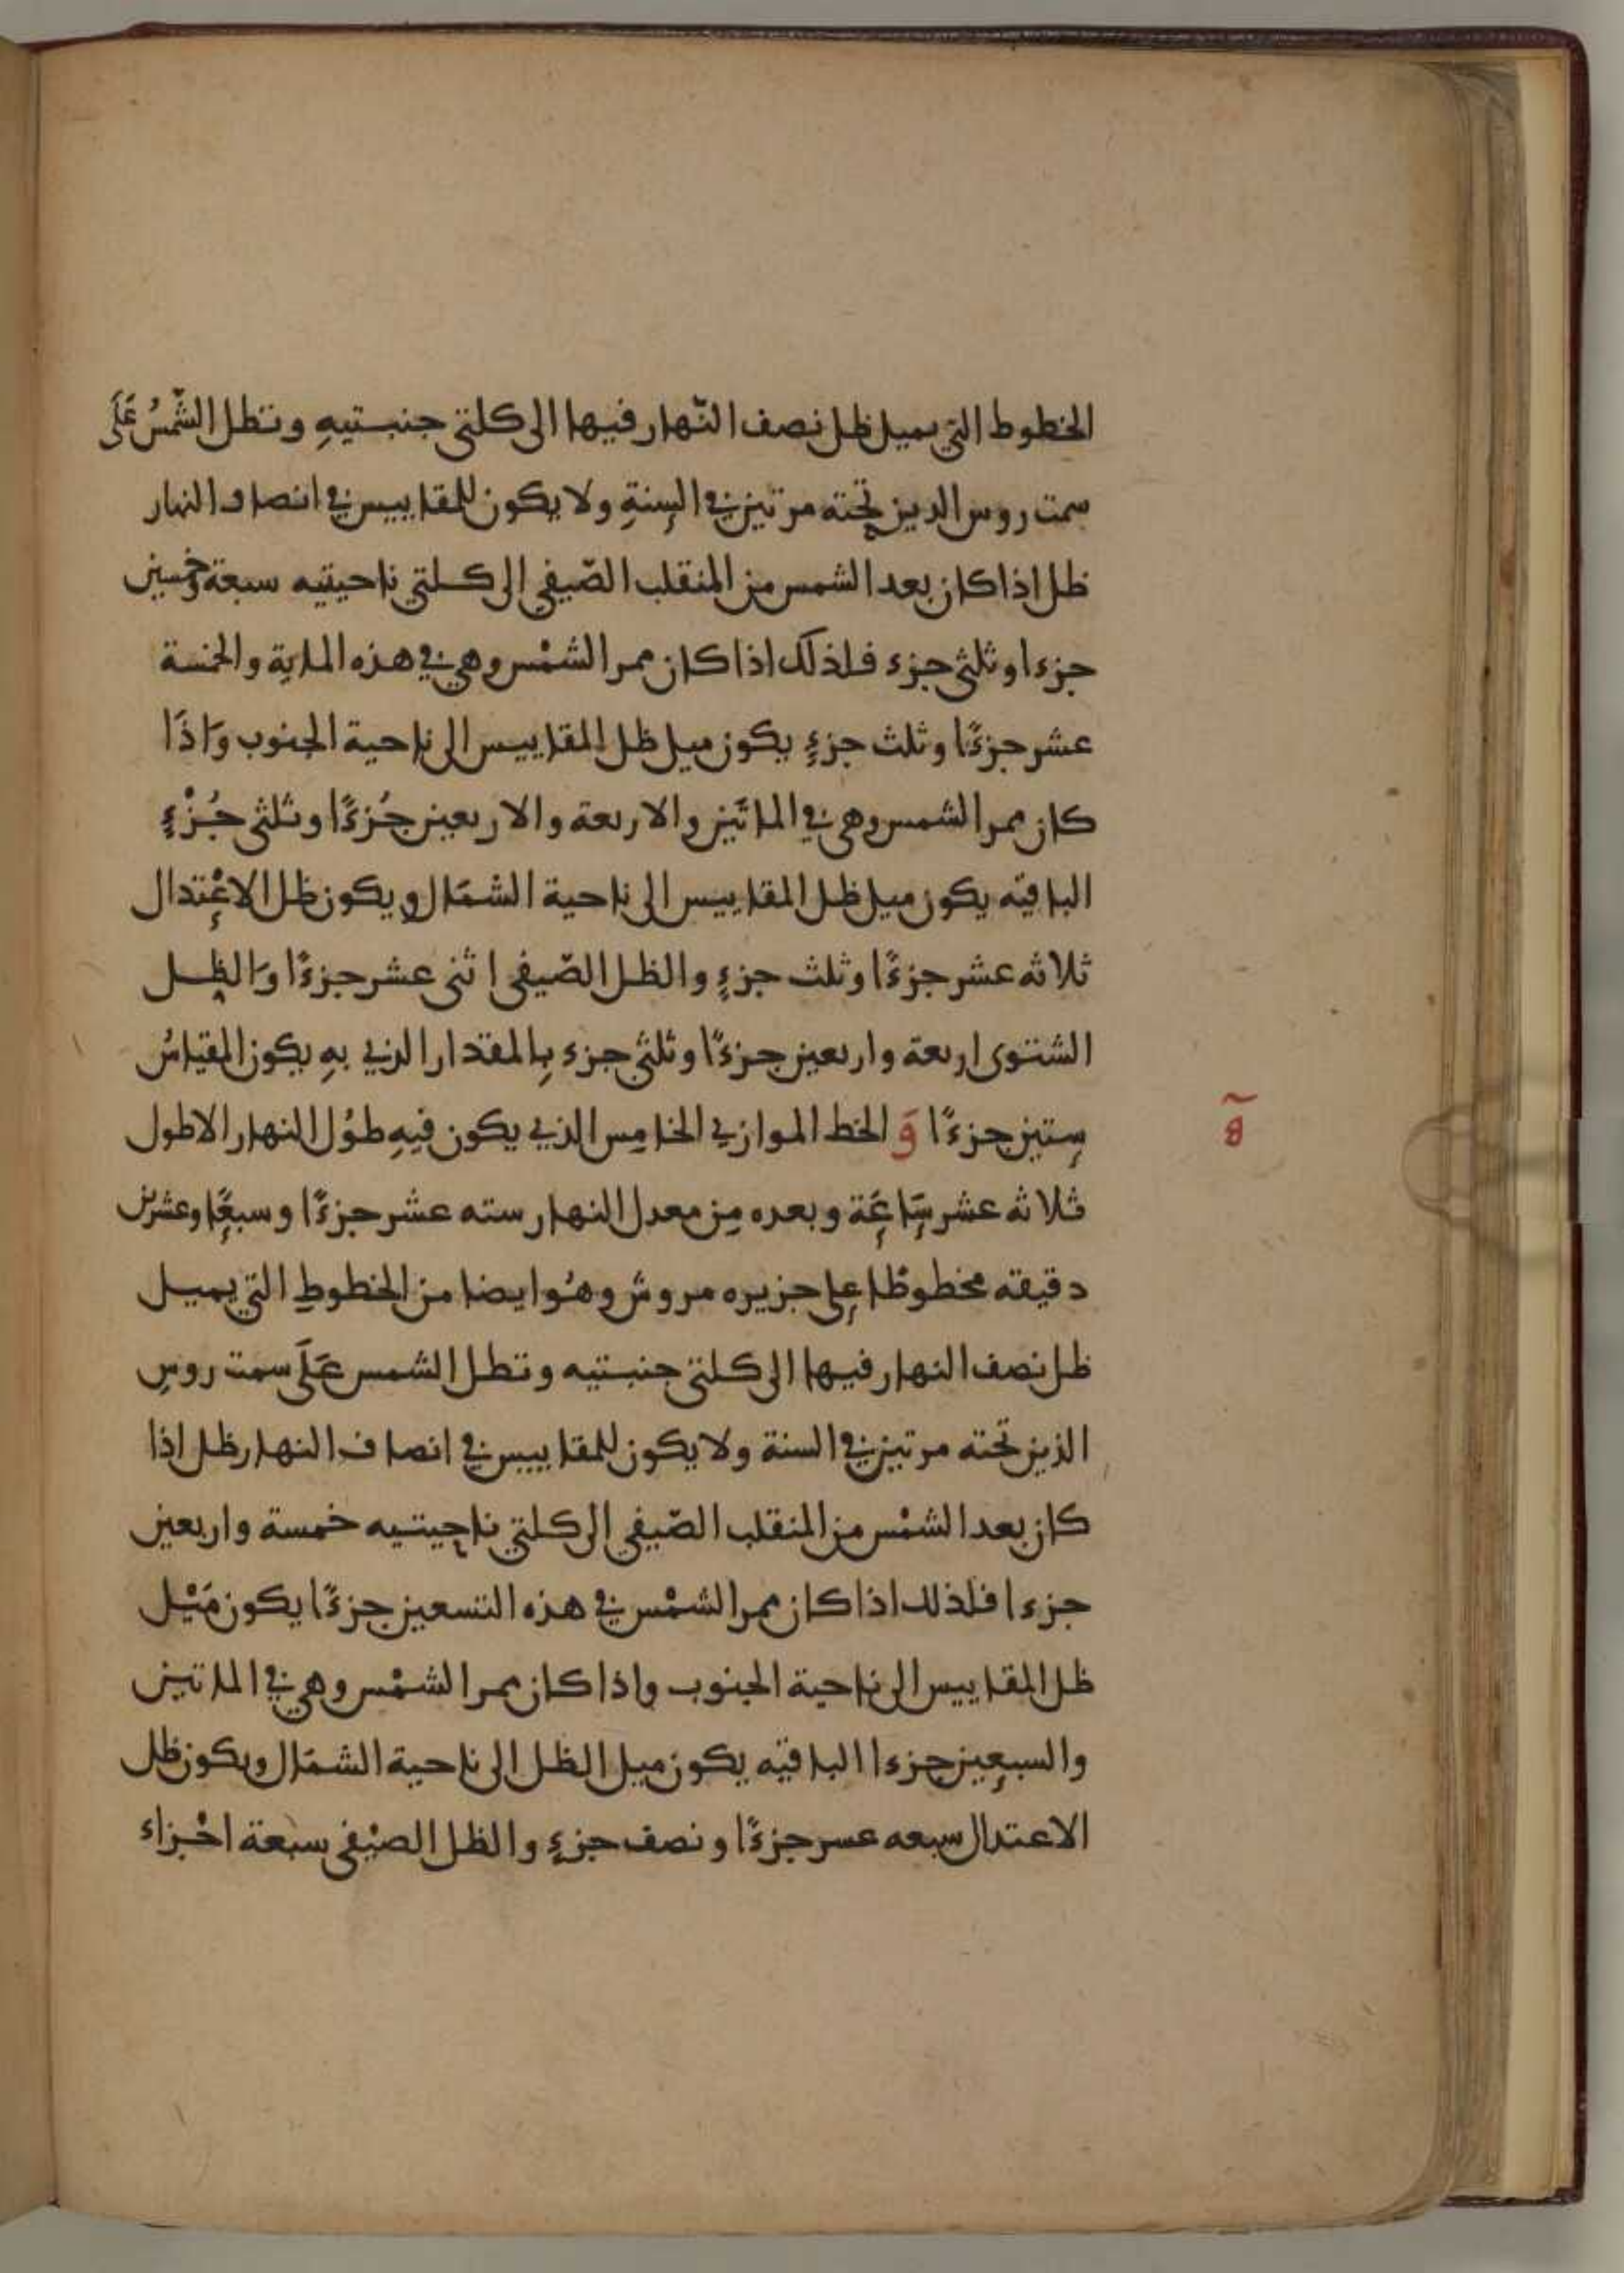 الخطوط التي يميل ظل نصف النّهار فيها الى كلتي جنبتيهِ وتظل الشّمسُ عَلَى
سمت روس الدين تحته مرتين في السنةِ ولا يكون للمقاييس في انصاف النهار
ظل اذا كان بعد الشمس من المنقلب الصّيفي الى كلتي ناحيتيه سبعة وخمسين
جزءا وثلثي جزء فلذلك اذا كان ممر الشمْس وهي في هذه المايةِ والخمسة
عشر جزءًا وثلث جزءٍ يكون ميل ظل المقاييس الى ناحية الجنوب وَاذَا
كان ممر الشمس وهي في الماتَين والاربعة والاربعين جُزءًا وثلثي جُزْءٍ
الباقيه يكون ميل ظل المقاييس الى ناحية الشمَال ويكون ظل الاعْتدال
ثلاثه عشر جزءًا وثلث جزءٍ والظل الصّيفي اثنى عشر جزءًا وَالظل
الشتوى اربعة واربعين جزءًا وثلثي جزء بِالمقدار الذي بهِ يكون المقياسُ
ستين جزءًا وَ الخط الموازي الخامِس الذي يكون فيهِ طوُل النهار الاطول
ة
ثلاثه عشر سَاعَة وبعده مِن معدل النهار سته عشر جزءًا وسبعًا وعشرين
دقيقه مخطوطا على جزيره مروش وهُوا يضا من الخطوطِ التي يميل
ظل نصف النهار فيها الى كلتى جنبتيه وتظل الشمس عَلَى سمت روسِ
الذين تحته مرتين في السنة ولا يكون للمقاييس في انصاف النهار ظل اذا
كان بعد الشمْس من المنقلب الصّيفي الى كلتي ناحيتيه خمسة واربعين
جزءا فلذلك اذا كان ممر الشمْس في هذه التسعين جزءًا يكون مَيْل
ظل المقاييس الى ناحية الجنوب واذا كان ممر الشمْس وهي في الماتين
والسبعين جزءا الباقيه يكون ميل الظل الى ناحية الشمَال ويكون ظل
الاعتدال سبعه عسر جزءًا ونصف جزءٍ والظل الصيْفي سبعة اجْزاء